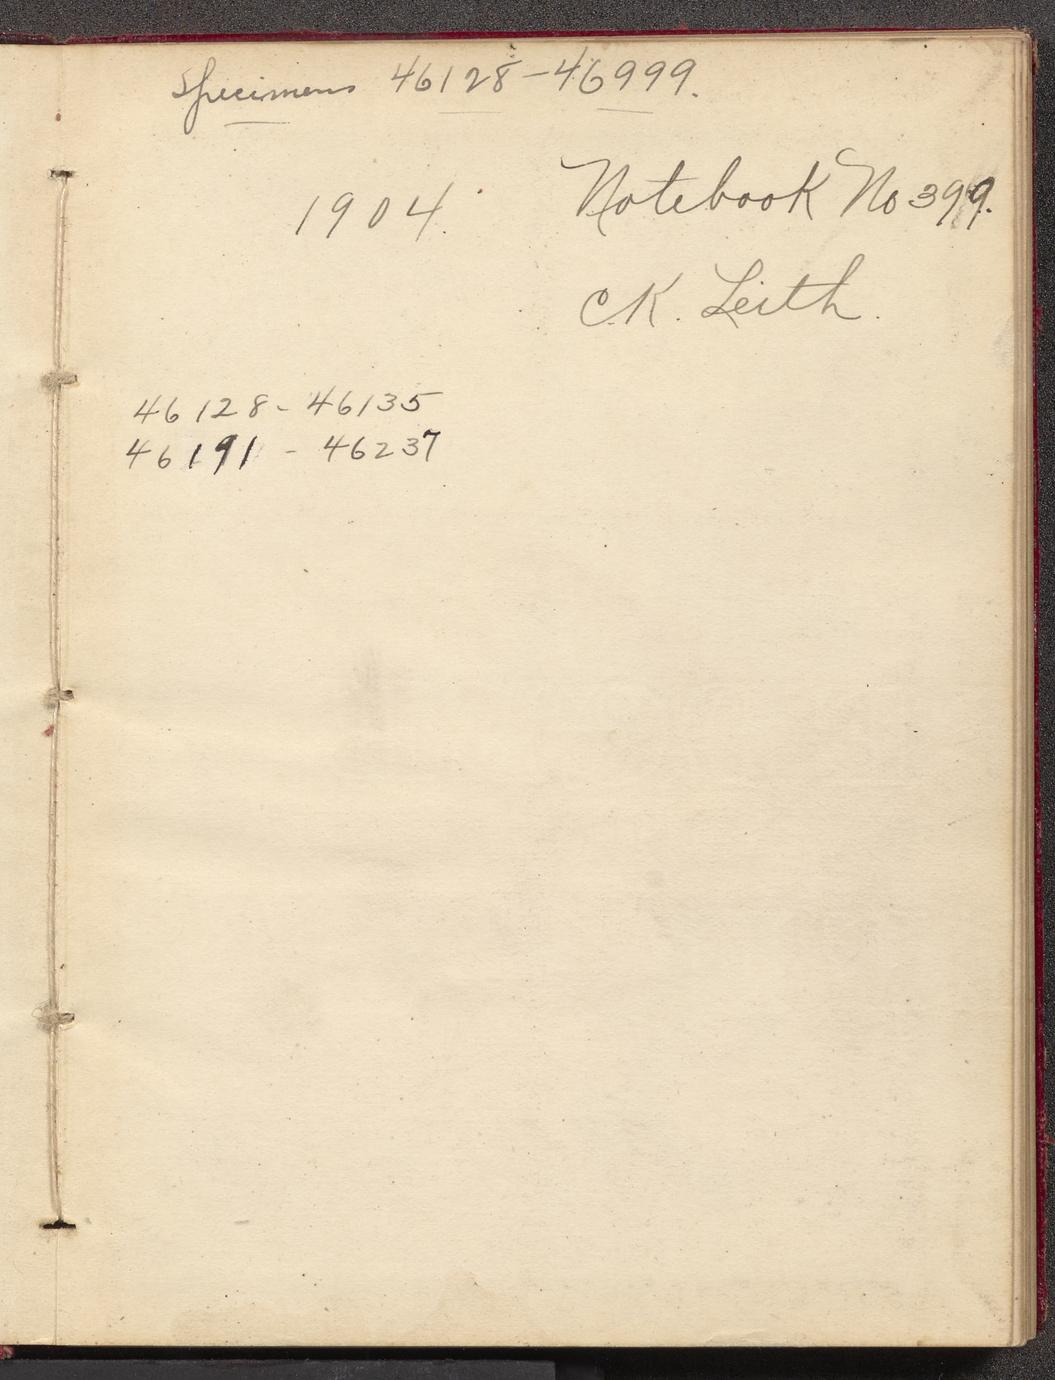 Specimens 46128-46999.
1904. Notebook No 399.
C.K. Leith.
46128 - 46135
46191 - 46237